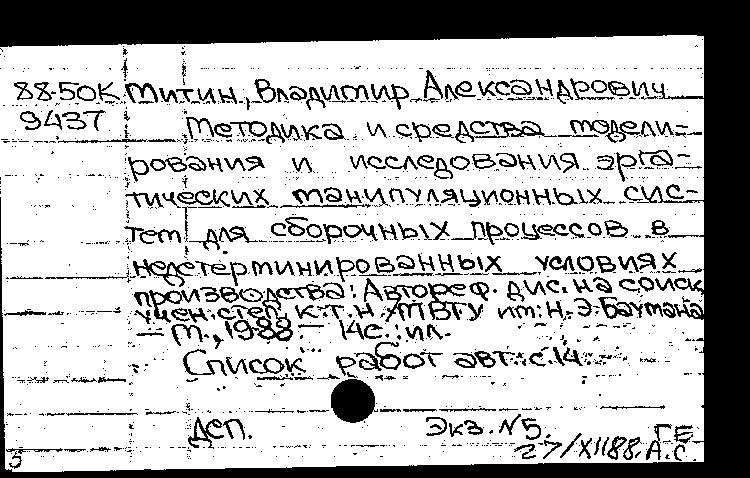 88-50К Митин, Владимир Александрович
9437 Методика и средства модели-
рования и исследования эрга-
тических манипуляционных сис-
тем для сборочных процессов в
недетерминированных условиях
производства: Автореф. дис. на соиск.
учен. степ. к.т.н. /МВТУ им. Н.Э. Баумана
— М., 1988.— 14с.: ил.
Список работ авт.: с.14.
ДСП. Экз. №5. ГЕ
27/XII88. А.С.
5